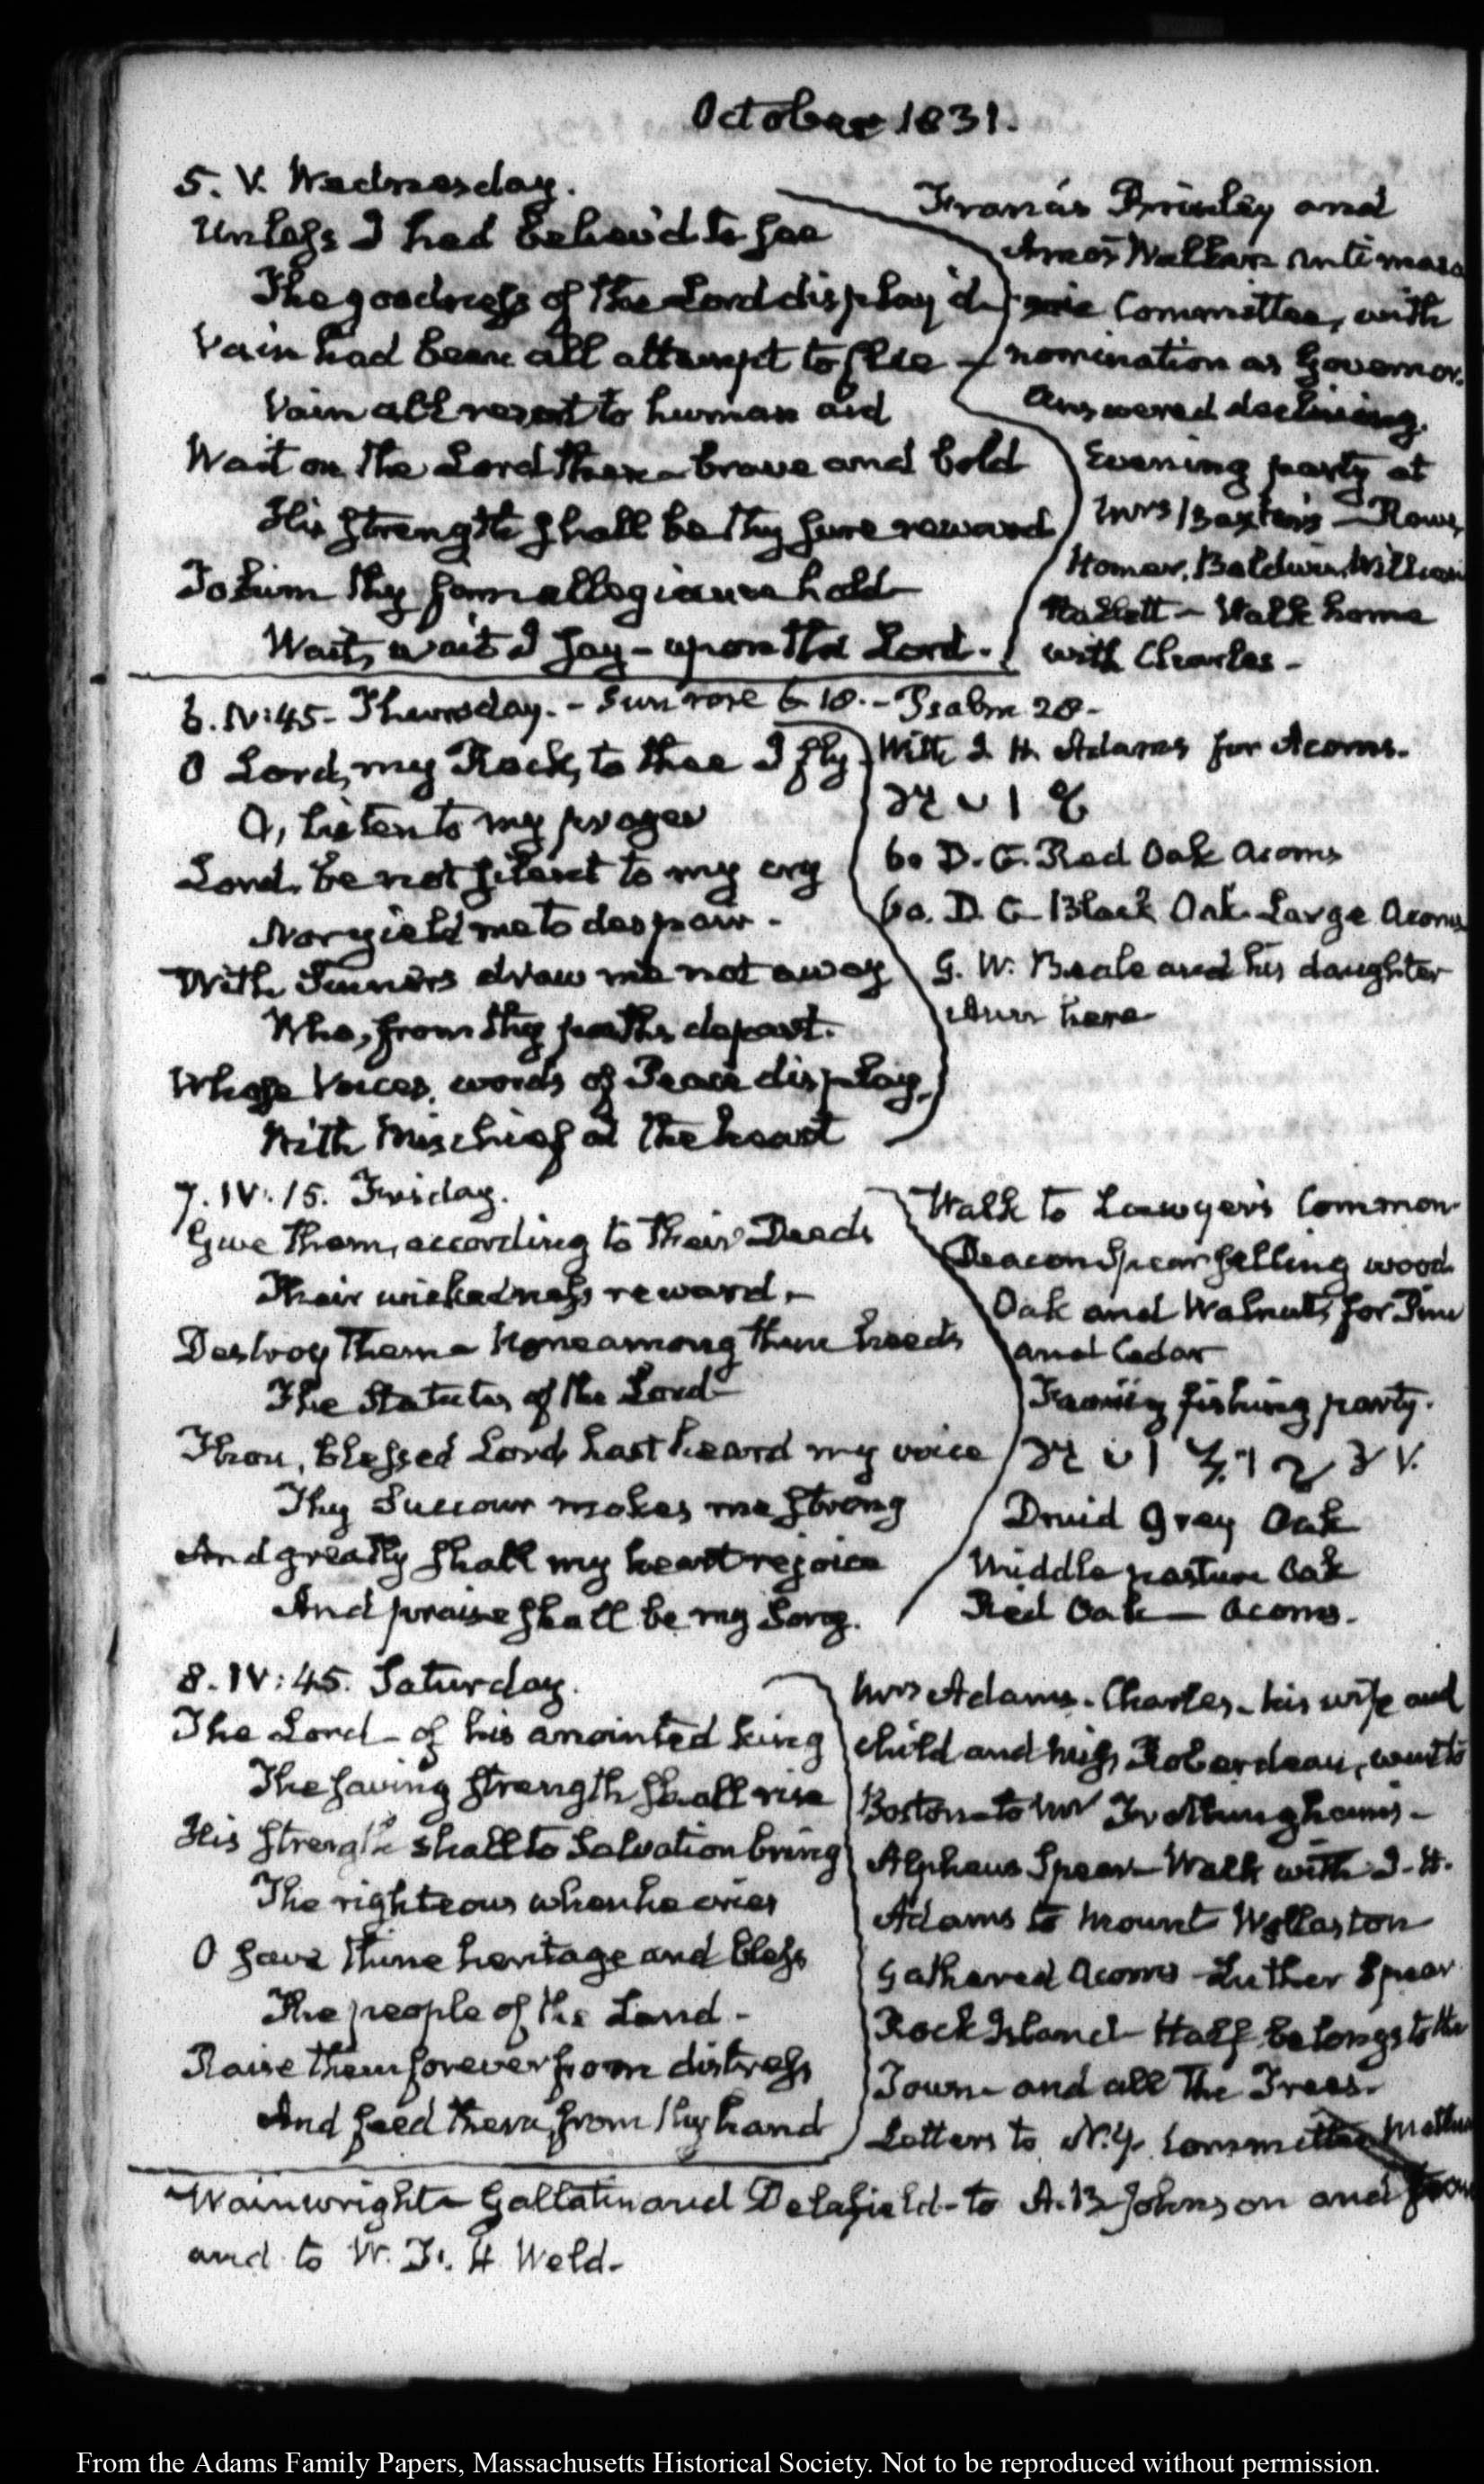 October 1831.
5. V. Wednesday.
Unless I had believ'd to see
The goodness of the Lord display'd
Vain had been all attempt to flee –
Vain all resort to human aid
Wait on the Lord then – brave and bold
His strength shall be thy sure reward
To him thy firm allegiance hold –
Wait, wait I say – upon the Lord.
Francis Brinley and
Amos Walker Antimaso
nic Committee, with
nomination as Governor.
Answered declining.
Evening party at
Mrs Baxter's – Rowe,
Homer, Baldwin, William
Hallett – Walk home
with Charles –
6. IV:45 – Thursday. – Sun rose 6. 10. – Psalm 28 –
O Lord, my Rock, to thee I fly
O, listen to my prayer
Lord, be not silent to my cry
Nor yield me to despair –
With Sinners draw me not away
Who, from thy paths depart.
Whose Voices, words of Peace display,
With Mischief at the heart
With I. H. Adams for Acorns.
60 D. G. Red Oak acorns
60. D. G Black Oak Large acorns
G. W. Beale and his daughter
Ann here
7. IV: 15. Friday.
Give them, according to their Deeds
Their wickedness reward, –
Destroy them – None among them heeds
The Statutes of the Lord –
Thou, blessed Lord, hast heard my voice
Thy Succour makes me strong
And greatly shall my heart rejoice
And praise shall be my Song.
Walk to Lawyer's Common
Deacon Spear felling wood
Oak and Walnut, for Pine
and Cedar
Family fishing party.
Druid Grey Oak
Middle pasture Oak
Red Oak – acorns.
8. IV: 45. Saturday.
The Lord – of his anointed king
The saving strength shall rise
His strength shall to Salvation bring
The righteous when he cries
O save thine heritage and bless
The people of the Land –
Raise them forever from distress
And feed them, from thy hand
Mrs Adams – Charles – his wife and
child and Miss Roberdeau, went to
Boston – to Mr Frothingham's –
Alpheus Spear – Walk with I. H.
Adams to Mount Wollaston
Gathered acorns – Luther Spear
Rock Island – Half belongs to the
Town – and all the Trees –
Letters to N.Y. Committee
Wainwright – Gallatin and Delafield – to A. B Johnson and from
and to W. F. H Weld –
From the Adams Family Papers, Massachusetts Historical Society. Not to be reproduced without permission.